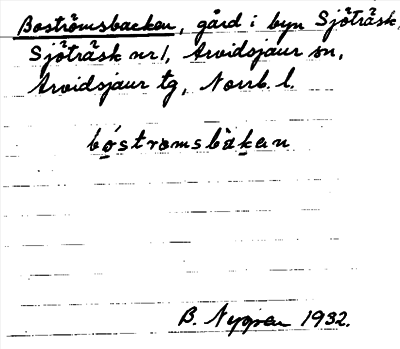 Boströmsbacken, gård i byn Sjöträsk,
Sjöträsk nr 1, Arvidsjaur sn,
Arvidsjaur tg, Norrb. l.
bóstromsbàkan
B. Nygren 1932.